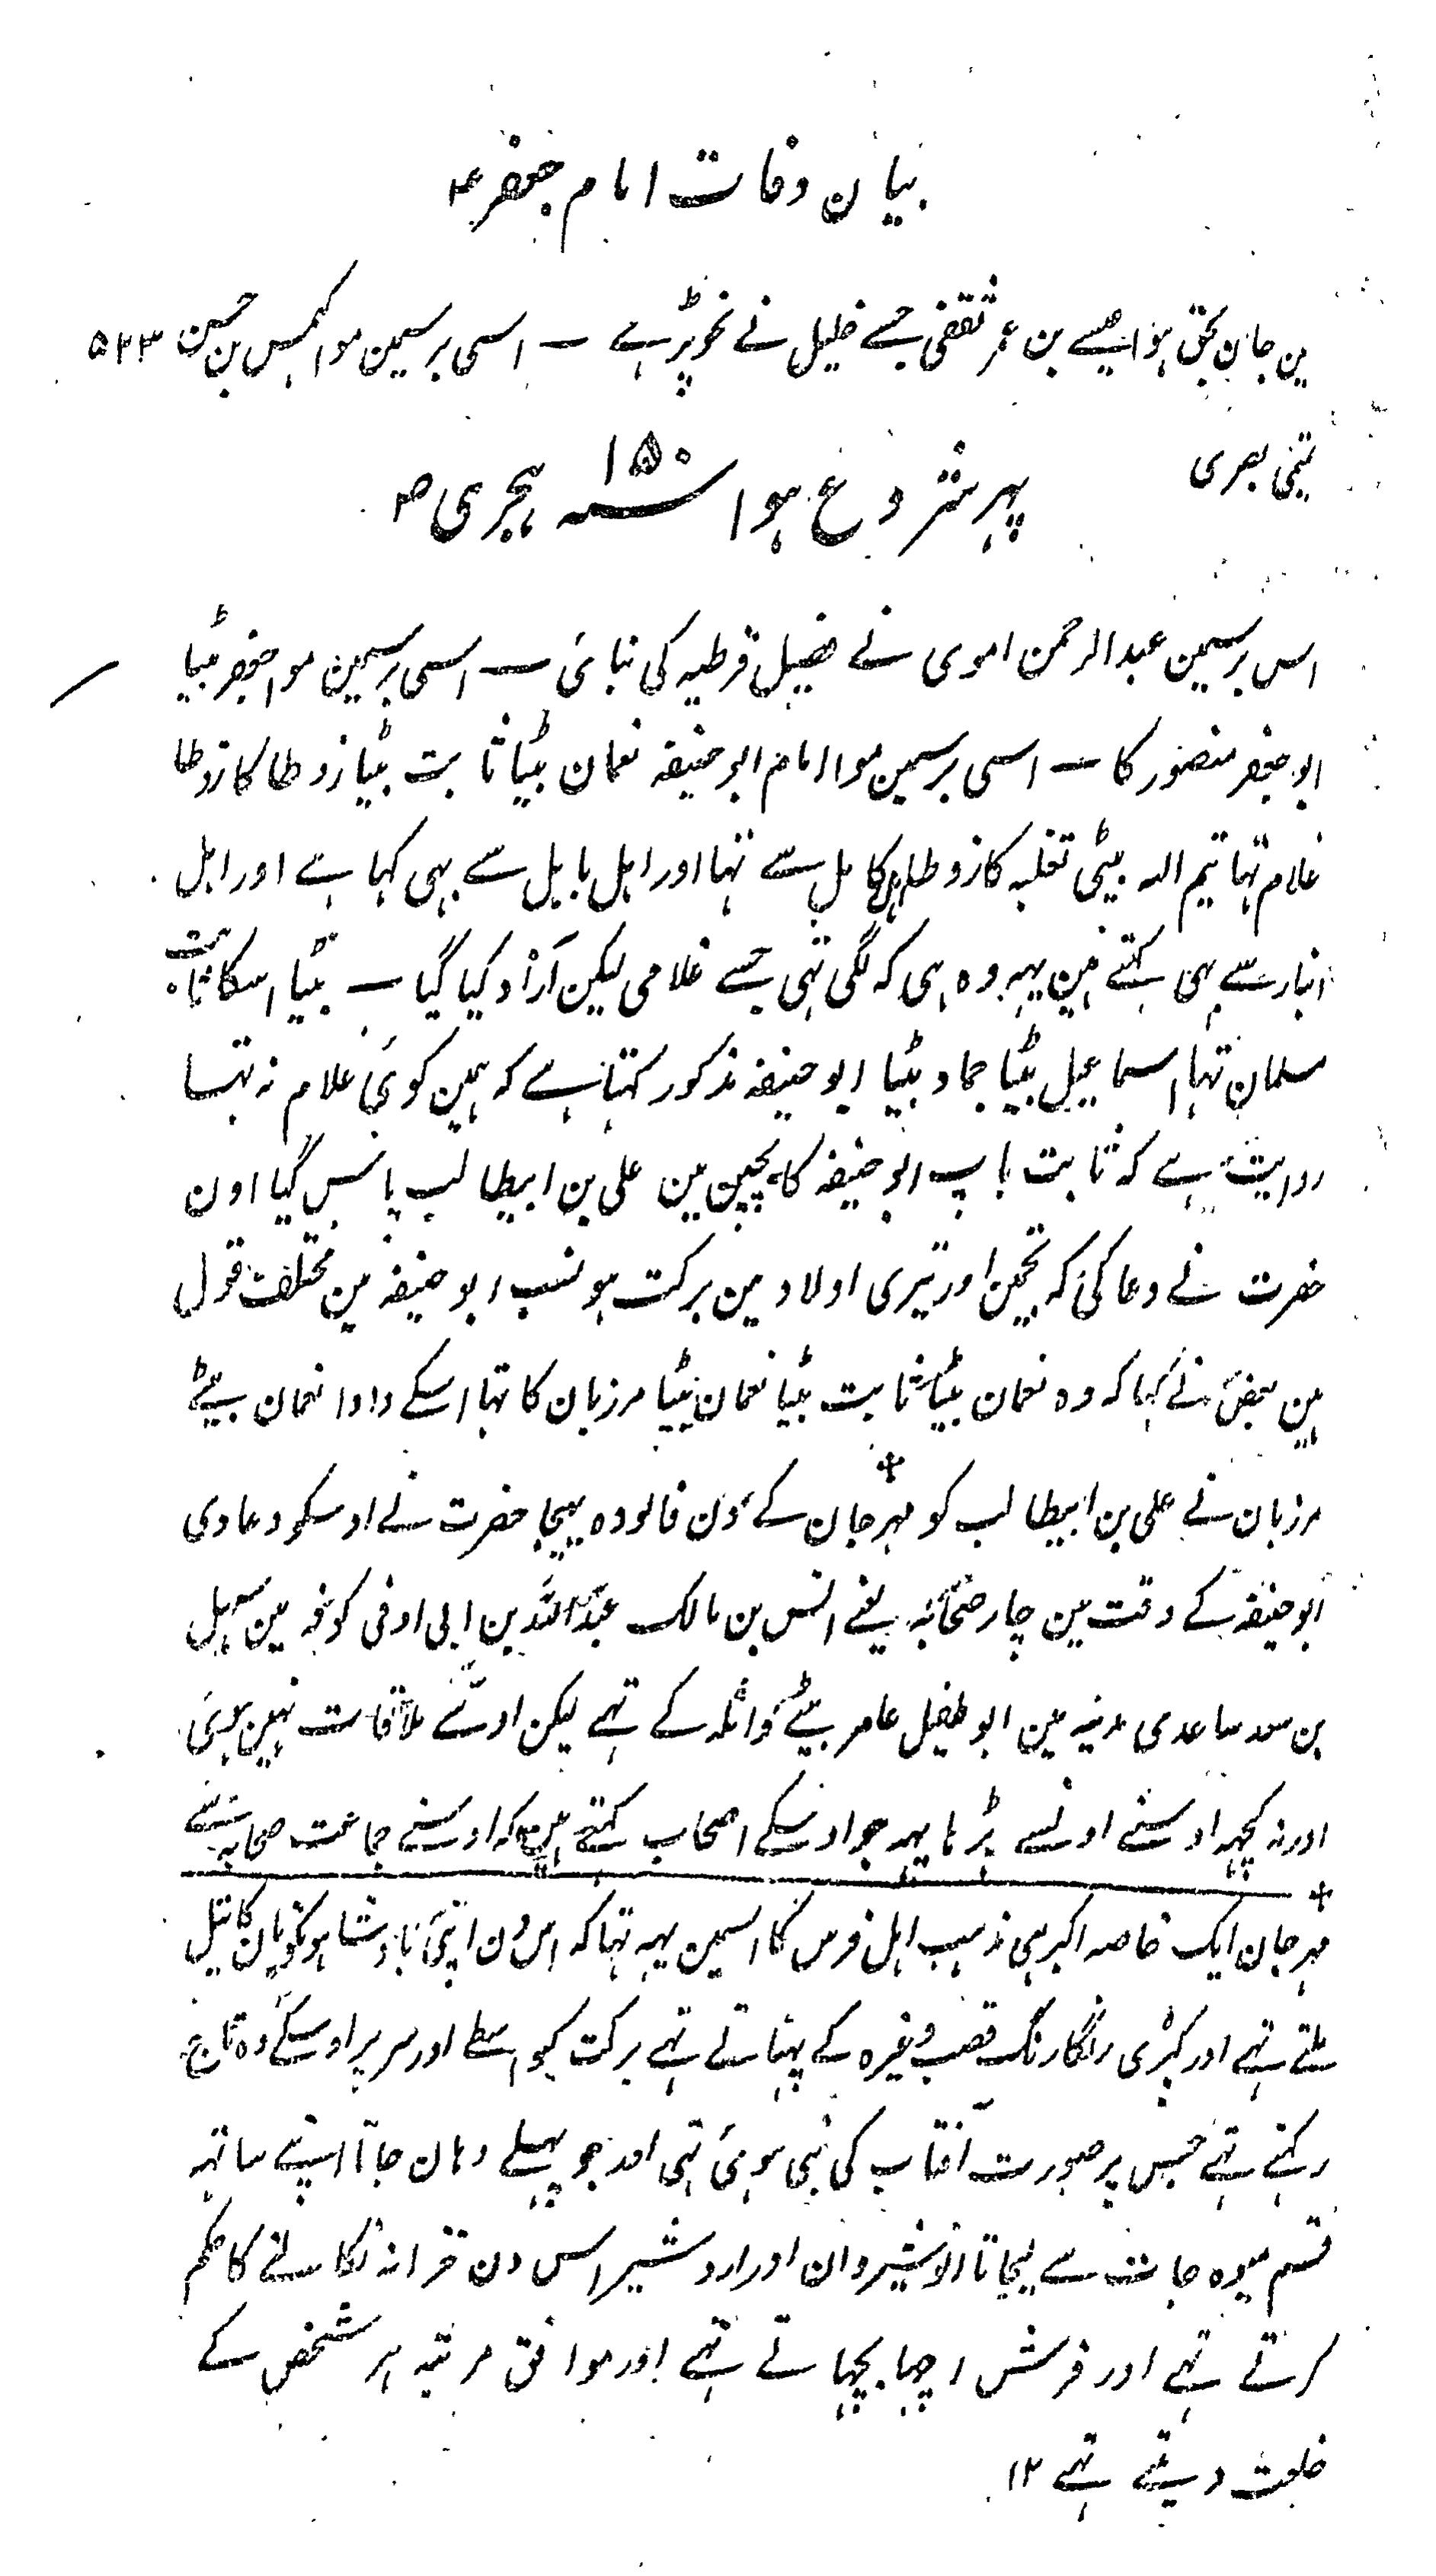 بیان وفات امام جعفر ع
ین جان بحق ہوا عیسے بن عمر ثقفی جسے خلیل نے نحو پڑہے ــ اسی برسمین موا کہمس بن حسن ۵۲۳
تیمی بصری
پہر شروع ہوا سنہ ۱۵۰ ہجری
اس برسمین عبد الرحمن اموی نے فصیل قرطبہ کی بنائی ــ اسی برسمین موا جعفر بیٹا
ابو جعفر منصور کا ــ اسی برسمین موا امام ابو حنیفہ نعمان بیٹا ثابت بیٹا زوطا کا زوطا
غلام تہا تیم اللہ بیٹی ثعلبہ کا زوطا اہل کابل سے تہا اور اہل بابل سے بہی کہا ہے اور اہل
انبار سے بہی کہتے ہین یہہ وہ ہی کہ لگی تہی جسے غلامی لیکن آزاد کیا گیا ــ بیٹا اسکا ثابت
مسلمان تہا اسماعیل بیٹا حماد بیٹا ابو حنیفہ مذکور کہتا ہے کہ ہمین کوئی غلام نہ تہا
روایت ہے کہ ثابت باپ ابو حنیفہ کا بچپن مین علی بن ابیطالب پاس گیا اون
حضرت نے دعا کی کہ تجہین اور تیری اولاد مین برکت ہو نسب ابو حنیفہ مین مختلف قول
ہین بعض نے کہا کہ وہ نعمان بیٹا ثابت بیٹا نعمان بیٹا مرزبان کا تہا اسکے دادا نعمان بیٹے
مرزبان نے علی بن ابیطالب کو مہرجان کے دن فالودہ بہیجا حضرت نے اوسکو دعا دی
ابو حنیفہ کے وقت مین چار صحابہ یعنے انس بن مالک عبد اللہ بن ابی اوفی کوفہ مین سہل
بن سعد ساعدی مدینہ مین ابو طفیل عامر بیٹے واثلہ کے تہے لیکن اونسے ملاقات نہین ہوئی
اور نہ کچہہ اوسنے اونسے پڑہا یہہ جو اوسکے اصحاب کہتے ہین کہ اوسنے جماعت صحابہ سے
مہرجان ایک خاصہ اکبر ہی مذہب اہل فرس کا اسمین یہہ تہا کہ اس دن اپنی بادشاہونکو بان کا تیل
ملتے تہے اور کپڑی رنگارنگ قصب وغیرہ کے پہناتے تہے برکت کیواسطے اور سر پر اوسکے وہ تاج
رکہتے تہے جس پر صورت آفتاب کی بنی ہوئی تہی اور جو پہلے وہان جاتا اپنے ساتہہ
قسم میوہ جات سے لیجاتا انوشیروان اور اردشیر اس دن خزانہ نکالنے کا حکم
کرتے تہے اور فرش اچہا بچہاتے تہے اور موافق مرتبہ ہر شخص کے
خلعت دیتے تہے ۱۲